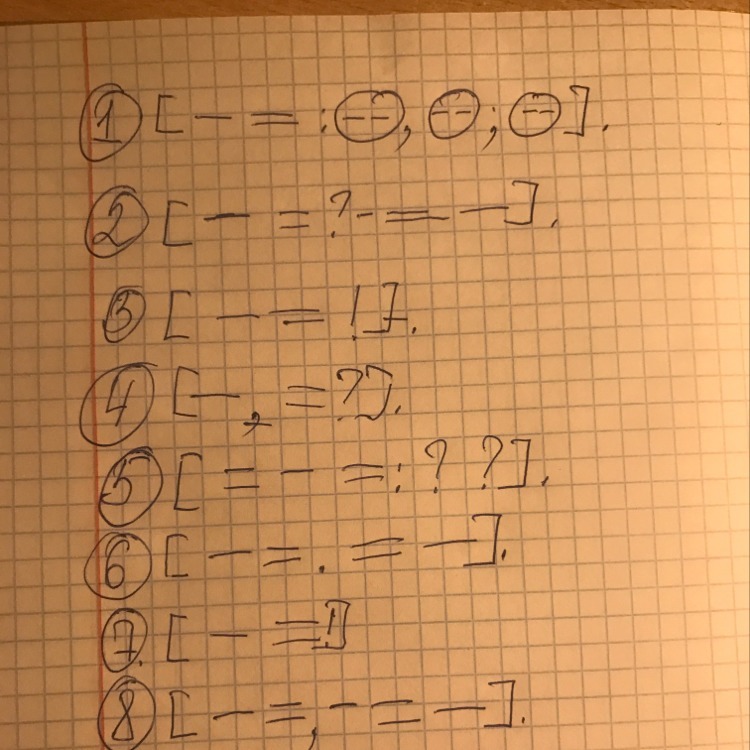 ① [ — = : (– –), (– –); (– –) ].
② [ — = ? - = — ].
③ [ — = ! ].
④ [ —, = ? ].
⑤ [ = — = : ? ? ].
⑥ [ — = . = — ].
⑦. [ — = ! ]
⑧ [ — =, — = — ].